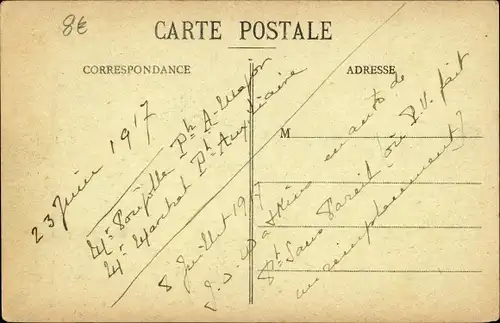 8€
CARTE POSTALE
CORRESPONDANCE
ADRESSE
M
23 Juin 1917
Mr Ph A-Major
Mr Marchal Ph Auxiliaire
8 Juillet 1917
J. S. en auto de
Pt Sans Pareil (où P.V. fait
un remplacement)